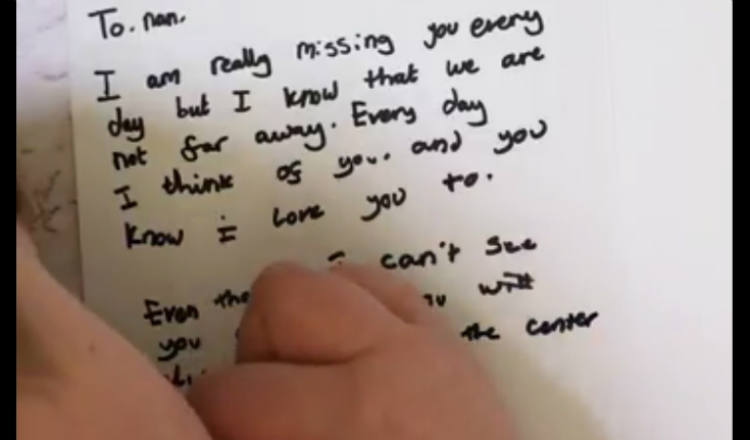 To. nan.
I am really missing you every
day but I know that we are
not far away. Every day
I think of you. and you
know I love you to.
Even I can't see
you will
the center